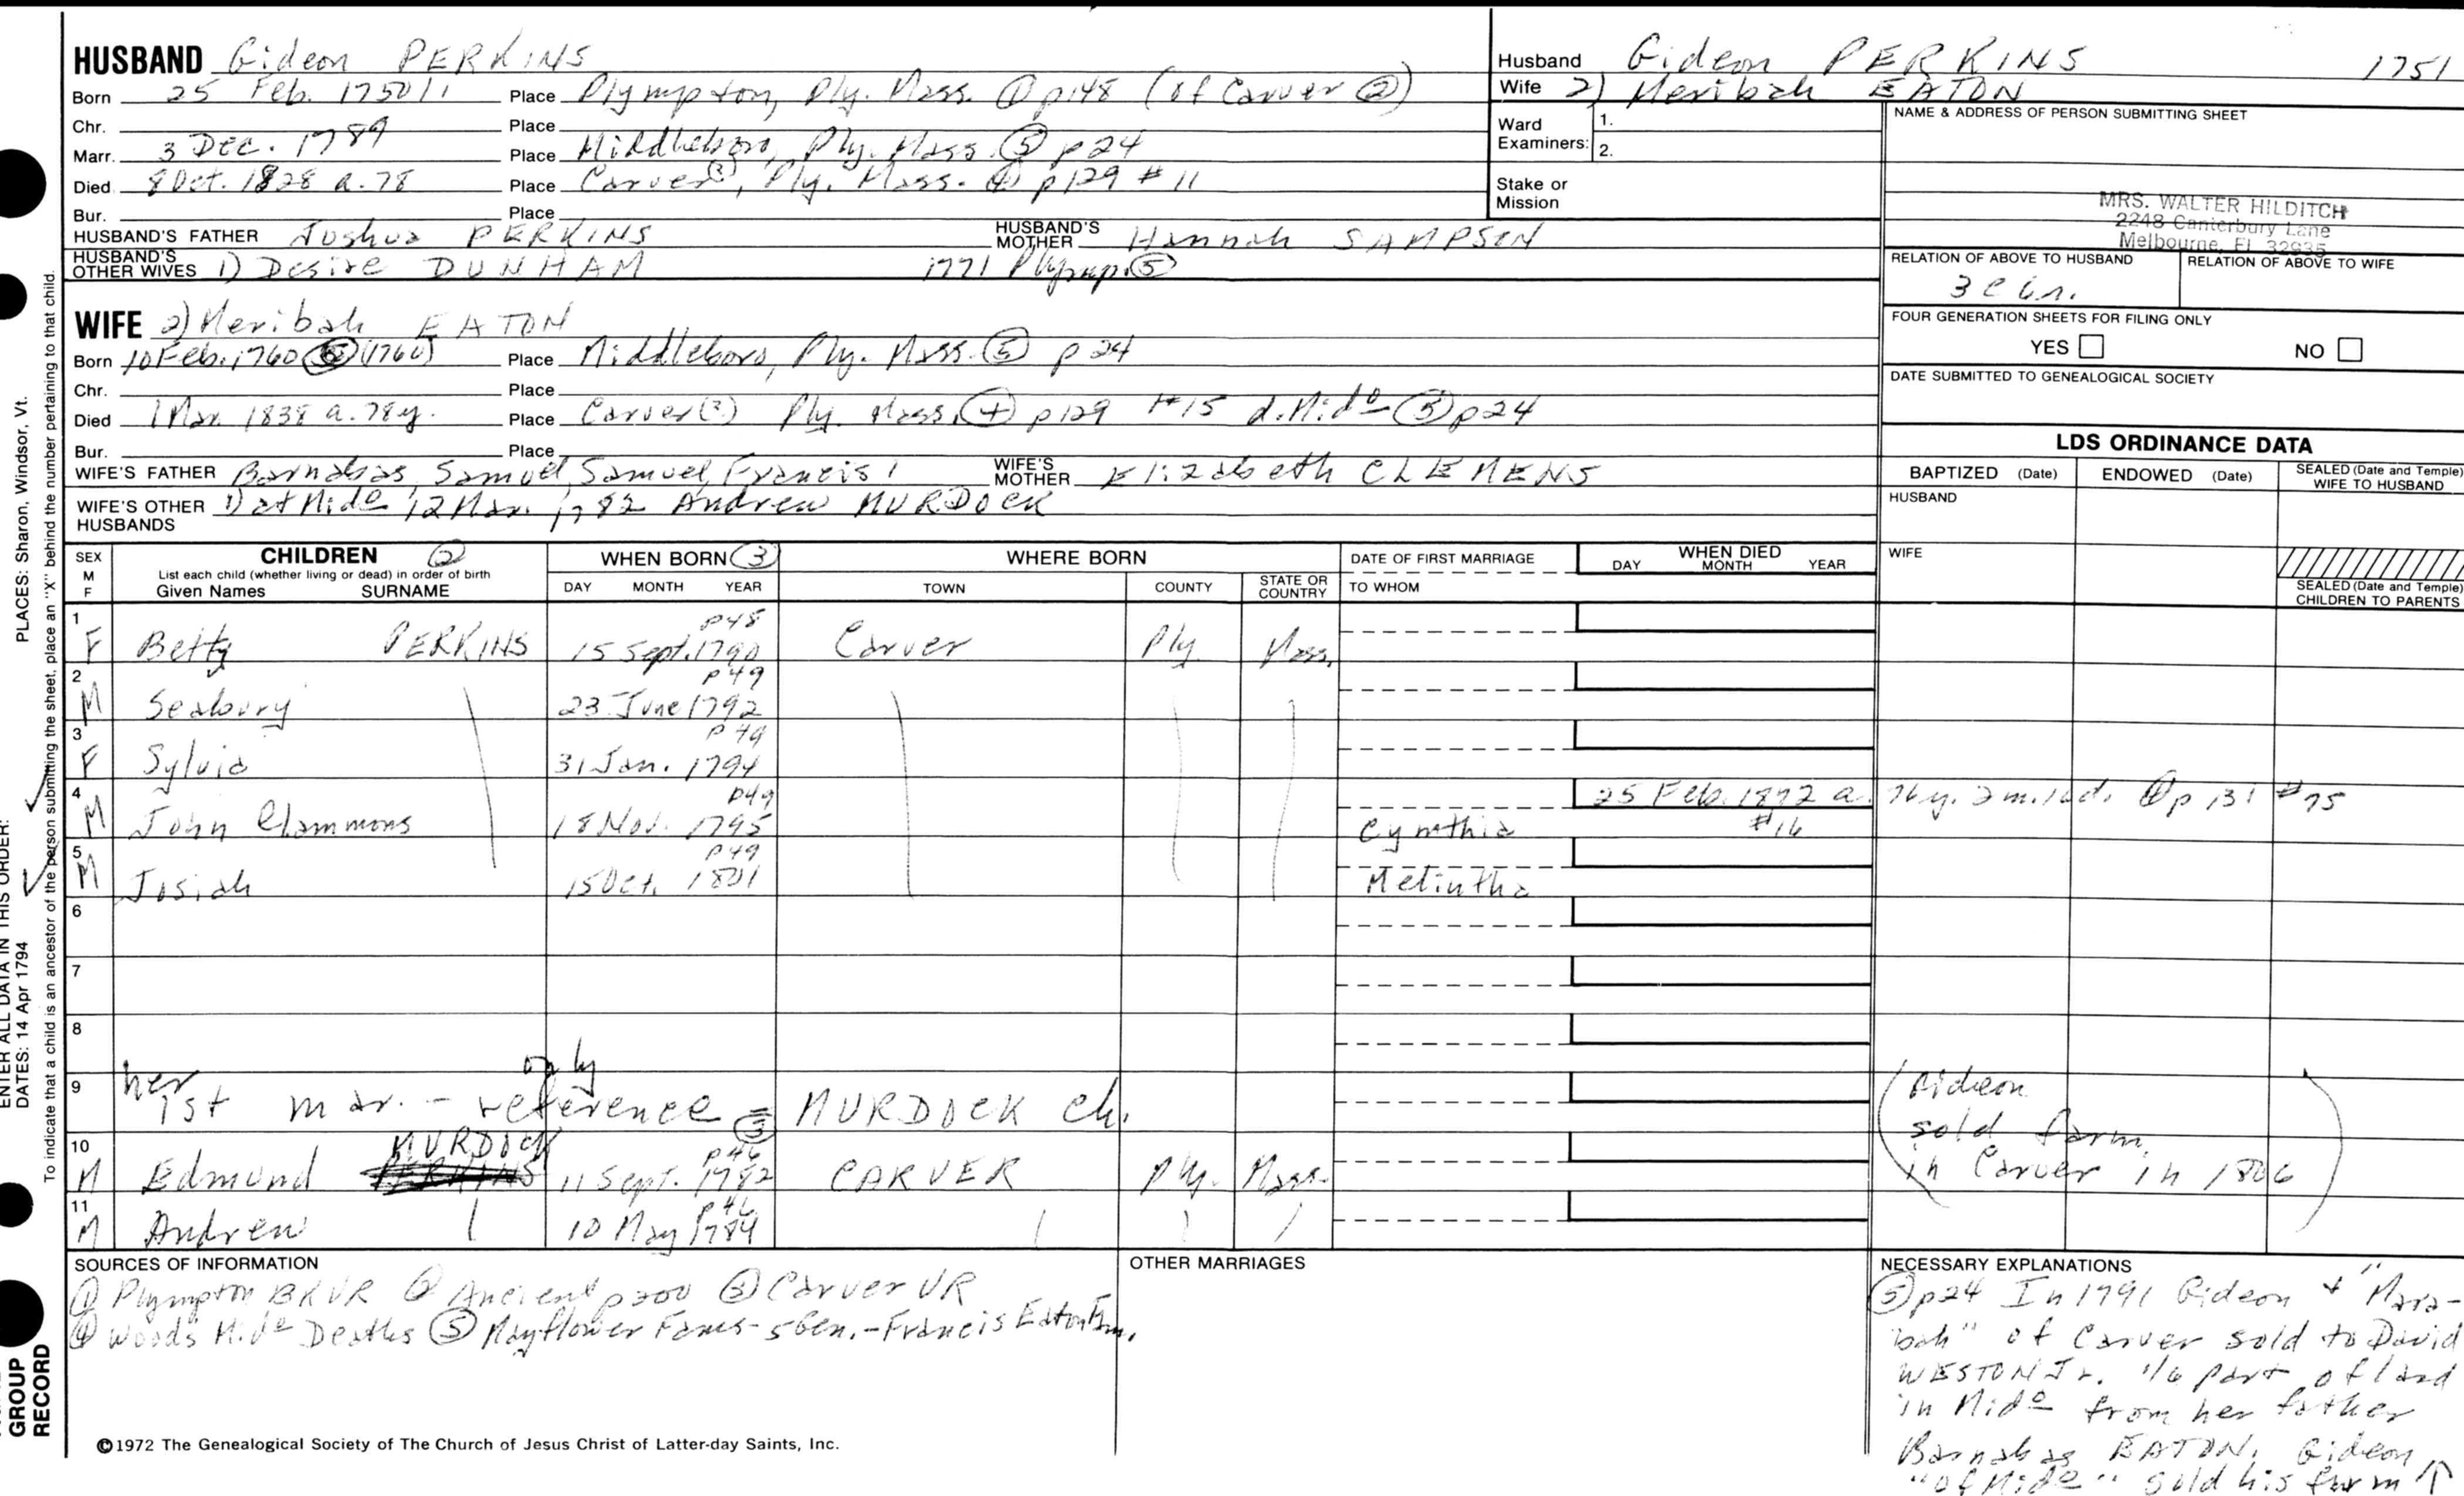 HUSBAND Gideon PERKINS
Born 25 Feb. 1750/1 Place Plympton, Ply. Mass. ① p148 (of Carver ②)
Chr. Place
Marr. 3 Dec. 1789 Place Middleboro, Ply. Mass. ⑤ p24
Died 8 Oct. 1828 a. 78 Place Carver(?), Ply. Mass. ④ p129 #11
Bur. Place
HUSBAND'S FATHER Joshua PERKINS HUSBAND'S MOTHER Hannah SAMPSON
HUSBAND'S OTHER WIVES 1) Desire DUNHAM 1771 Plymp. ⑤
WIFE 2) Meribah EATON
Born 10 Feb. 1760 ⑤ (1760) Place Middleboro, Ply. Mass. ⑤ p24
Chr. Place
Died 1 Mar. 1838 a. 78y. Place Carver(?) Ply. Mass. ④ p129 #15 d. Mido ⑤ p24
Bur. Place
WIFE'S FATHER Barnabas, Samuel, Samuel, Francis 1 WIFE'S MOTHER Elizabeth CLEMENS
WIFE'S OTHER HUSBANDS 1) at Mido 12 Mar. 1782 Andrew MURDOCK
Husband Gideon PERKINS 1751
Wife 2) Meribah EATON
Ward Examiners: 1.
2.
Stake or Mission
NAME & ADDRESS OF PERSON SUBMITTING SHEET
MRS. WALTER HILDITCH
2248 Canterbury Lane
Melbourne, FL 32935
RELATION OF ABOVE TO HUSBAND RELATION OF ABOVE TO WIFE
FOUR GENERATION SHEETS FOR FILING ONLY
YES NO
DATE SUBMITTED TO GENEALOGICAL SOCIETY
LDS ORDINANCE DATA
BAPTIZED (Date) ENDOWED (Date) SEALED (Date and Temple) WIFE TO HUSBAND
HUSBAND
WIFE
SEALED (Date and Temple) CHILDREN TO PARENTS
SEX M F CHILDREN ② WHEN BORN ③ WHERE BORN DATE OF FIRST MARRIAGE WHEN DIED
List each child (whether living or dead) in order of birth
Given Names SURNAME DAY MONTH YEAR TOWN COUNTY STATE OR COUNTRY TO WHOM DAY MONTH YEAR
1 p48
F Betty PERKINS 15 Sept. 1790 Carver Ply Mass.
2 p49
M Seabury 23 June 1792
3 p49
F Sylvia 31 Jan. 1794
4 p49 25 Feb. 1872 a. 76y. 2m. 16d. ④ p131 #75
M John Clammons 18 Nov. 1795 Cynthia #16
5 p49
M Josiah 15 Oct. 1801 Melintha
6
7
8
9 her 1st mar. - reference only ③ MURDOCK ch.
10 MURDOCK p46
M Edmund PERKINS 11 Sept. 1782 CARVER Ply. Mass.
11 p46
M Andrew 10 May 1784
(Gideon
sold farm
in Carver in 1806)
SOURCES OF INFORMATION
① Plympton BKVR ② Ancient p200 ③ Carver VR
④ Woods Mido Deaths ⑤ Mayflower Fams - 5 Gen. - Francis Eaton Fam.
OTHER MARRIAGES
NECESSARY EXPLANATIONS
⑤ p24 In 1791 Gideon + "Mara-
bah" of Carver sold to David
WESTON Jr. 1/6 part of land
in Mido from her father
Barnabas EATON. Gideon
"of Mido" sold his farm ↑
©1972 The Genealogical Society of The Church of Jesus Christ of Latter-day Saints, Inc.
PLACES: Sharon, Windsor, Vt.
To indicate that a child is an ancestor of the person submitting the sheet, place an "X" behind the number pertaining to that child.
ENTER ALL DATA IN THIS ORDER:
DATES: 14 Apr 1794
GROUP
RECORD